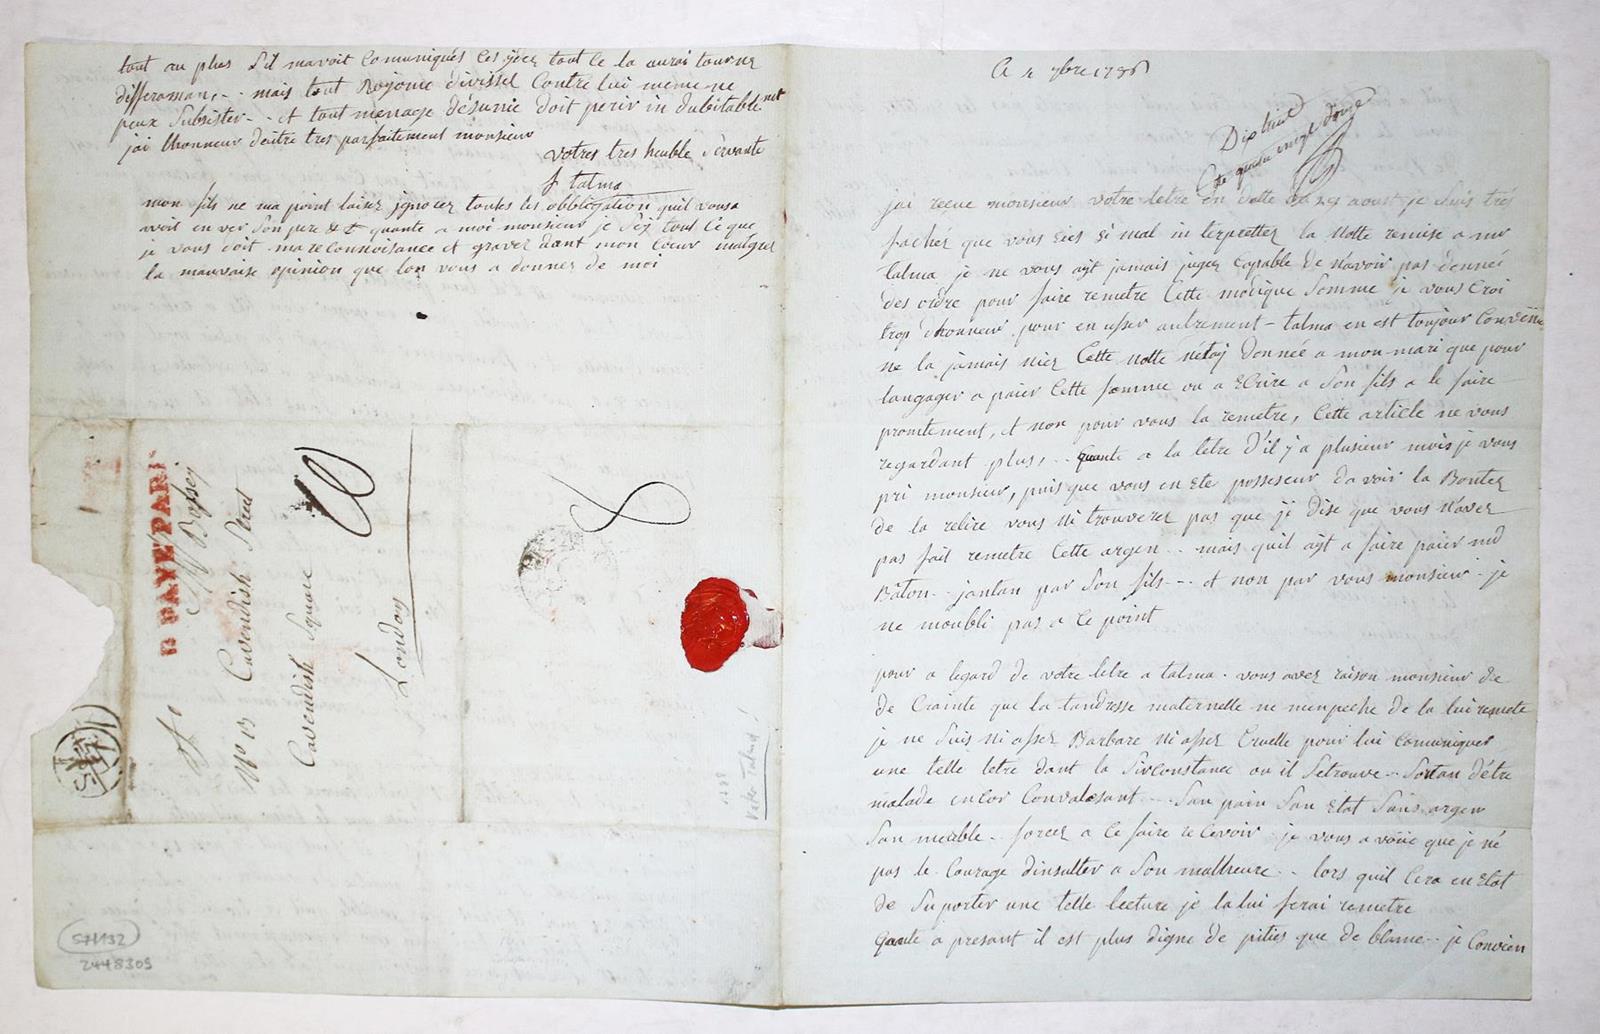 Ce 2 7bre 1786
Dix huit
jai recue monsieur votre letre en datte du 29 aoust je suis tres
fachez que vous eies si mal interpretter la notte remise a mr
talma je ne vous ayt jamais juger capable de n'avoir pas donnée
des ordre pour faire remetre Cette modique Somme je vous Croi
trop d'honneur pour en usser autrement - talma en est toujour Convenue
ne la jamais niez Cette notte n'étoy donnée a mon mari que pour
langager a paier Cette somme ou a Ecrire a Son fils a le faire
promtement, et non pour vous la remetre, Cette article ne vous
regardant plus, .. quante a la letre d'il y a plusieur mois je vous
pri monsieur, puis que vous en ete possesseur davoir la Bontez
de la relire vous ni trouverez pas que ji dise que vous n'avez
pas fait remetre Cette argen .. mais quil ayt a faire paier md
Bâton .. jantan par Son fils --- et non par vous monsieur - je
ne moubli pas a Ce point
pour a legard de votre letre a talma . vous avez raison monsieur de
de Crainte que la tandresse maternelle ne menpeche de la lui remete
je ne Suis ni assez Barbare ni assez Cruelle pour lui Comuniquer
une telle letre dant la Sirconstance ou il Se trouve .. Sortan d'étre
malade encor Convalesant --- San pain San Etat Sans argen
San meuble .. forcez a Ce faire recevoir je vous avoüe que je né
pas le Courage dinsulter a Son malheure .. lors quil Cera en Etat
de Suporter une telle lecture je la lui ferai remetre
Quante a presant il est plus digne de pities que de blame .. je Convien
tout au plus S'il mavoit Comuniqués Ces ydées tout Ce la aurai tournez
differaman, .. mais tout Royome divissel Contre lui meme ne
peux Subsister .. et tout menage désunie doit perir indubitablemet
jai lhonneur deitre tres parfaitement monsieur
votres tres heuble Servante
f talma
mon fils ne ma point laisez jgnorez toutes les obbligation quil vous a
avoit en ver Son pere &t quante a moi monsieur je Sez tout Ce que
je vous doit ma reconnoisance et gravez dant mon Coeur malgres
la mauvaise opinion que lon vous a donnez de moi
PAYÉ PARIS
To
Mr
No 13 Cavendish Street
Cavendish Square
London
571132
2448305